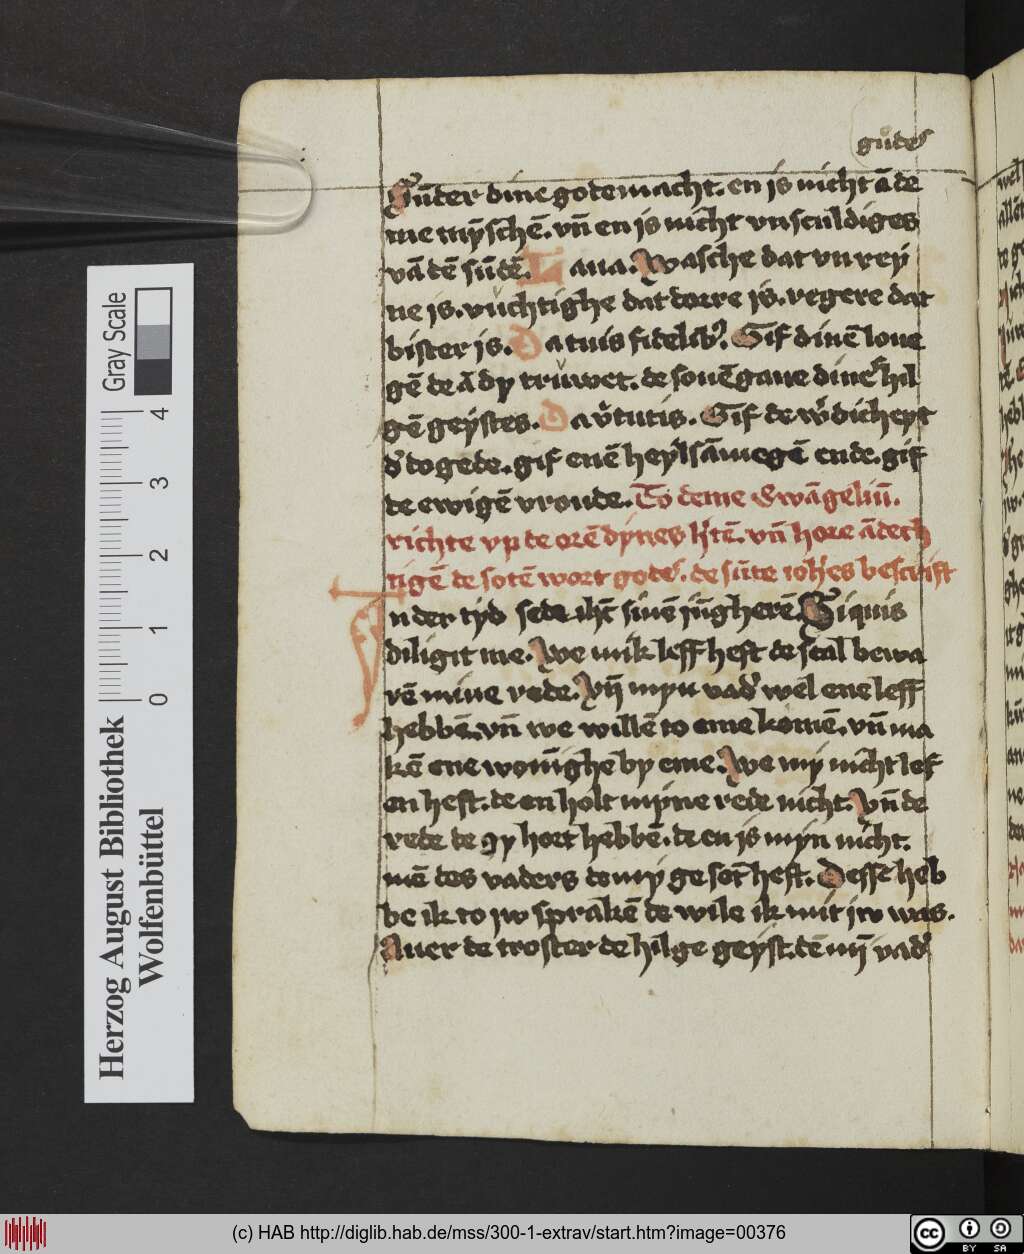 gůdes
Sūder dine godemacht. en is nicht āde
me mȳschē. vn̄ en is nicht vnsculdiges
vā dē sūdē. Laua. Wasche dat vnrey
ne is. vüchtighe dat dorre is. regere dat
bister is. Da tuis fidelibꝰ. Gif dinē loue
gē de ā dy trůwet. de souēgaue dinēs hil
gē geystes. Da v̉tutis. Gif de w̉dicheyt
d̉ dogede. gif enē heylsāmegē ende. gif
de ewigē vroude. To deme Ewāgeliū.
richte vp de orē dynes h̉tē. vn̄ hore ādech
tigē de sotē wort godes. de sūte ioh̉es bescrift
In der tyd sede ih̄c sinē iūgherē. Siquis
diligit me. We mik leff heft de scal bewa
rē mine rede. Vn̄ myn vad̉ wel ene leff
hebbē. vn̄ we willē to eme komē. vn̄ ma
kē ene wonighē by eme. We my nicht lef
en heft. de en holt myne rede nicht. Vn̄ de
rede de gy hoet hebbē. de en is myn nicht.
mē des vaders de my ge sōt heft. Desse heb
be ik to iw sprakē de wile ik mit iw was.
Auer de troster de hilge geyst. dē mȳ vad̉
Gray Scale
4
3
2
1
0
Herzog August Bibliothek
Wolfenbüttel
(c) HAB http://diglib.hab.de/mss/300-1-extrav/start.htm?image=00376
cc
BY SA